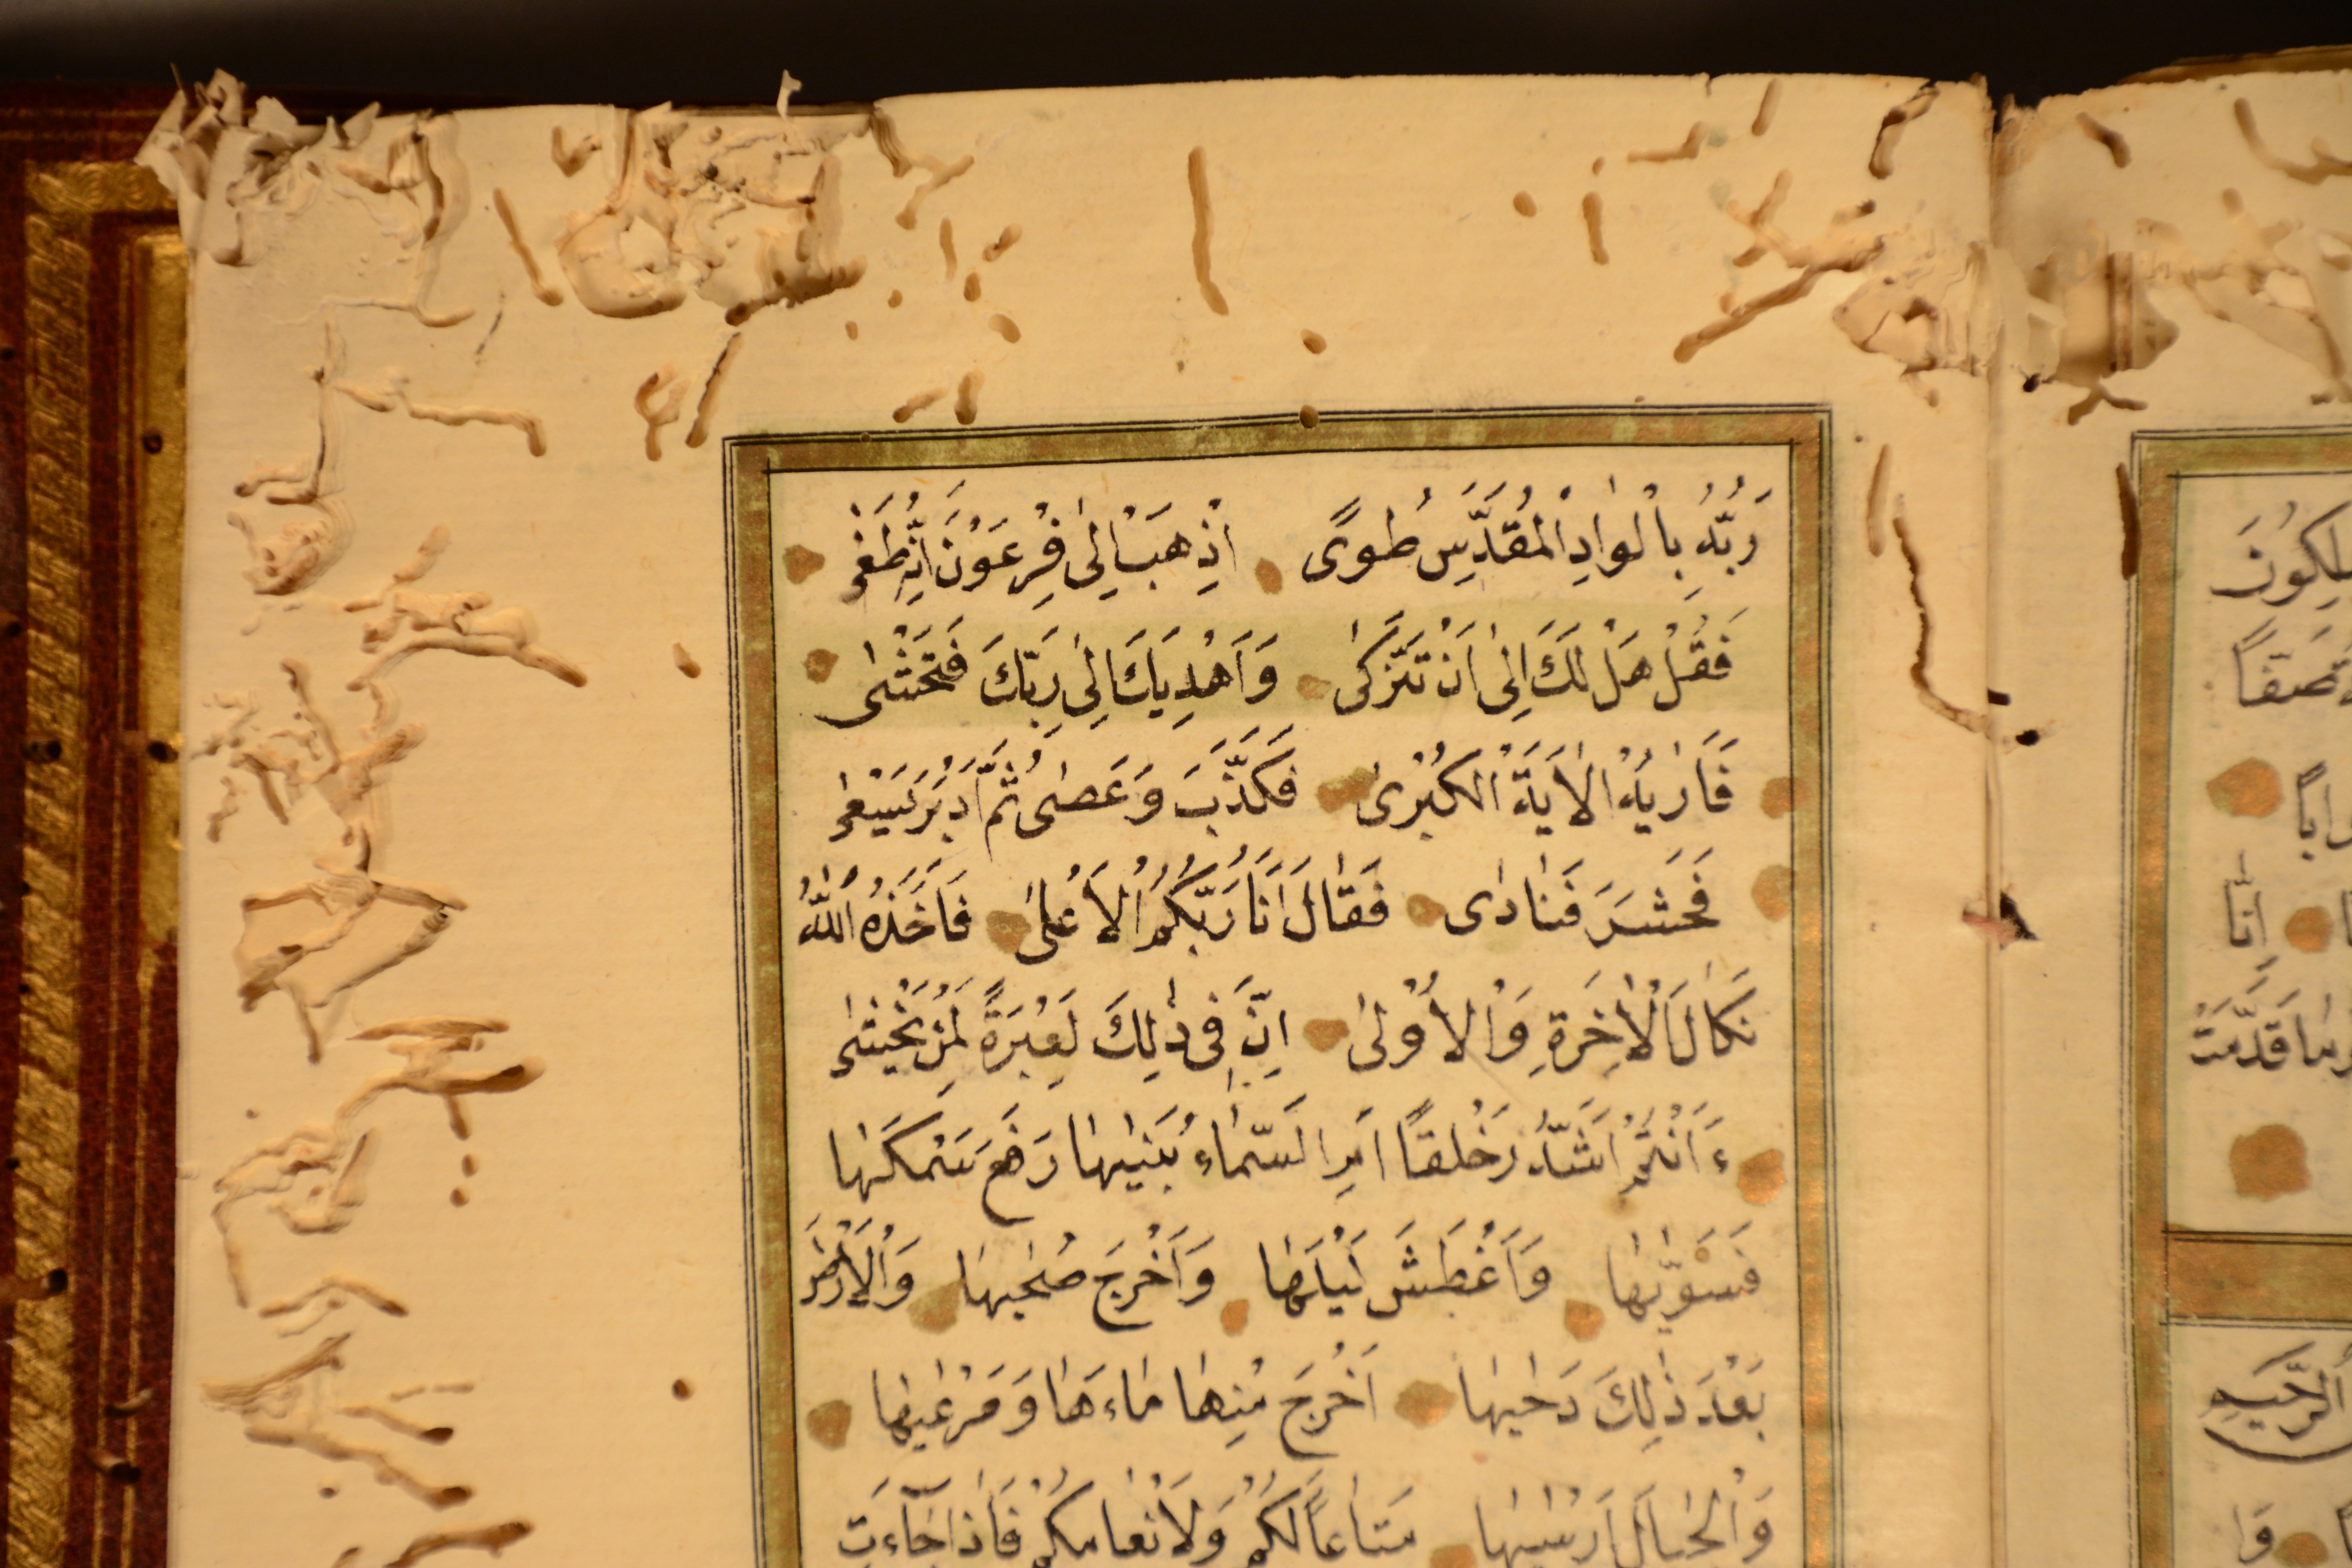 رَبُّهُ بِالْوَادِ الْمُقَدَّسِ طُوًى اِذْهَبْ اِلٰى فِرْعَوْنَ اِنَّهُ طَغٰى
فَقُلْ هَلْ لَكَ اِلٰى اَنْ تَزَكّٰى وَاَهْدِيَكَ اِلٰى رَبِّكَ فَتَخْشٰى
فَاَرٰيهُ الْاٰيَةَ الْكُبْرٰى فَكَذَّبَ وَعَصٰى ثُمَّ اَدْبَرَ يَسْعٰى
فَحَشَرَ فَنَادٰى فَقَالَ اَنَا رَبُّكُمُ الْاَعْلٰى فَاَخَذَهُ اللّٰهُ
نَكَالَ الْاٰخِرَةِ وَالْاُوْلٰى اِنَّ فِى ذٰلِكَ لَعِبْرَةً لِمَنْ يَخْشٰى
ءَاَنْتُمْ اَشَدُّ خَلْقًا اَمِ السَّمَاءُ بَنٰيهَا رَفَعَ سَمْكَهَا
فَسَوّٰيهَا وَاَغْطَشَ لَيْلَهَا وَاَخْرَجَ ضُحٰيهَا وَالْاَرْضَ
بَعْدَ ذٰلِكَ دَحٰيهَا اَخْرَجَ مِنْهَا مَاءَهَا وَمَرْعٰيهَا
وَالْجِبَالَ اَرْسٰيهَا مَتَاعًا لَكُمْ وَلِاَنْعَامِكُمْ فَاِذَا جَاءَتِ
صَفًّا
اِنَّا
قَدَّمَتْ
الرَّحِيمِ